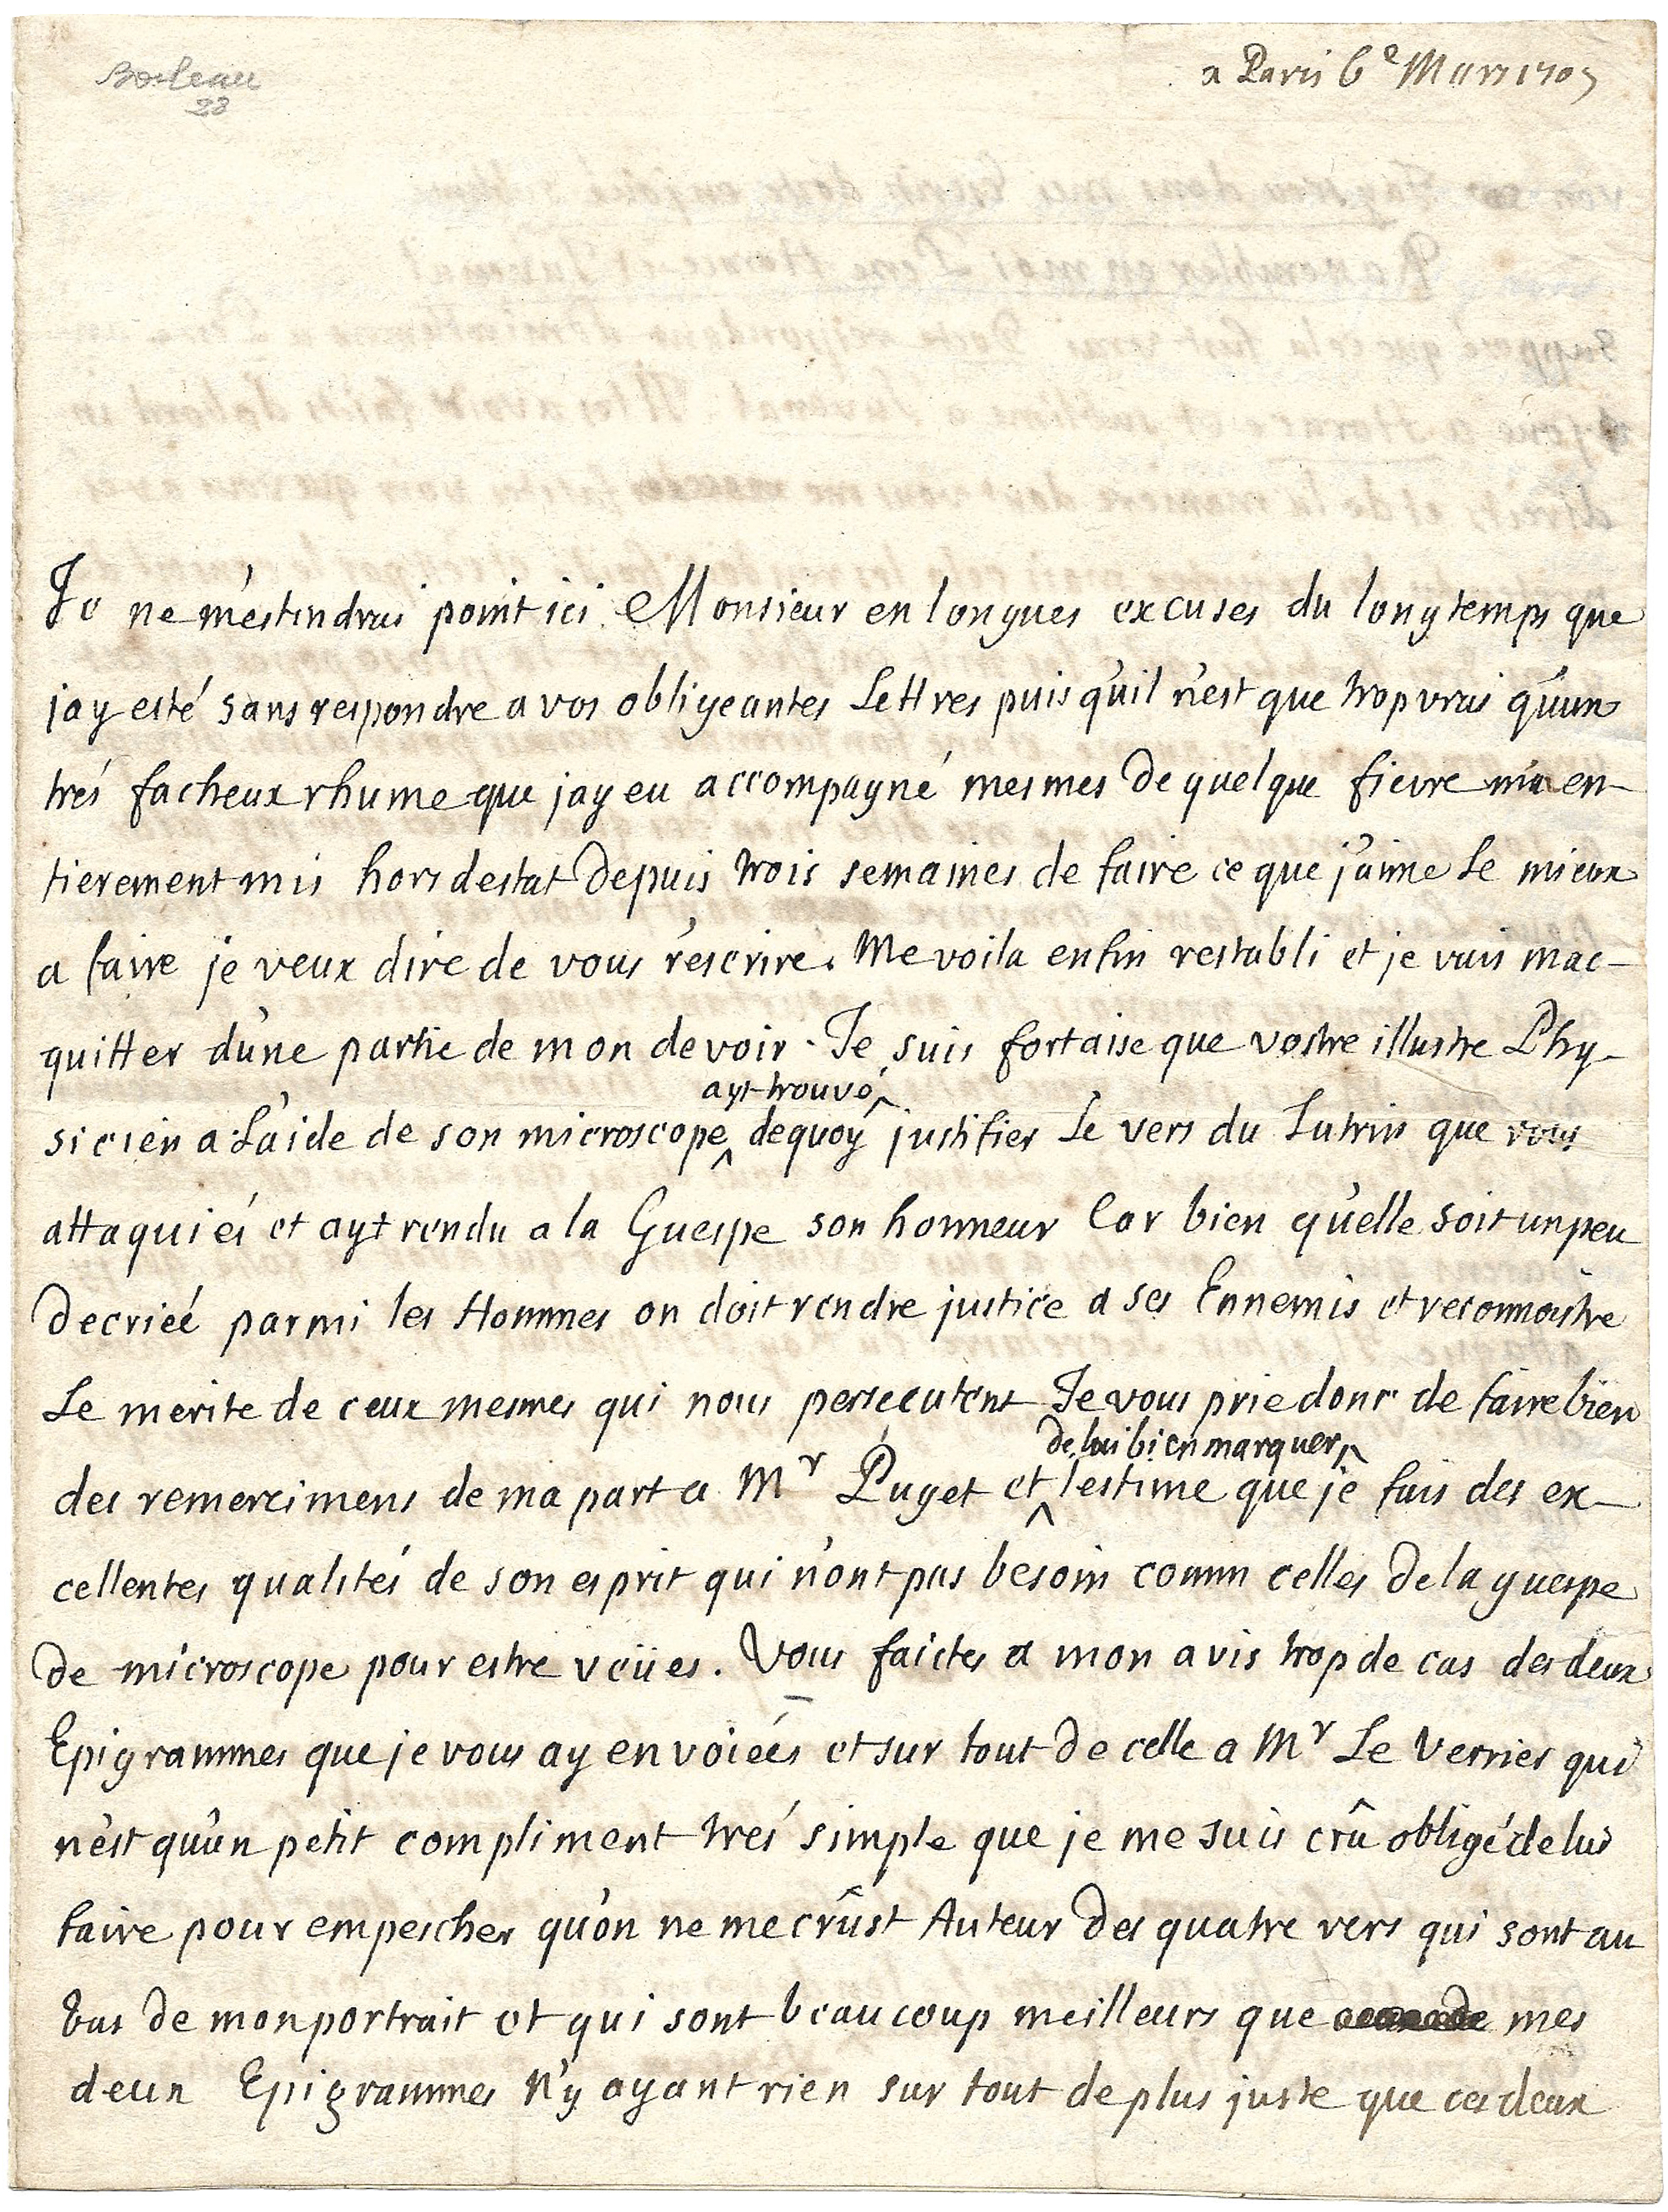 Boileau
28
a Paris 6e Mars 1705
Je ne m'estendrai point ici Monsieur en longues excuses du long temps que
j'ay esté sans respondre a vos obligeantes Lettres puis qu'il n'est que trop vrai qu'un
trés facheux rhume que j'ay eu accompagné mesmes de quelque fievre m'a en-
tierement mis hors d'estat depuis trois semaines de faire ce que j'aime le mieux
a faire je veux dire de vous r'escrire. Me voila enfin restabli et je vais m'ac-
quitter d'une partie de mon devoir. Je suis fort aise que vostre illustre Phy-
ayt trouvé
sicien a l'aide de son microscope de quoy justifier Le vers du Lutrin que vous
attaquiés et ayt rendu a la Guespe son honneur Car bien qu'elle soit un peu
decrieé parmi les Hommes on doit rendre justice a ses Ennemis et reconnoistre
Le merite de ceux mesmes qui nous persecutent Je vous prie donc de faire bien
de lui bien marquer
des remercimens de ma part a Mr Puget et l'estime que je fais des ex-
cellentes qualités de son esprit qui n'ont pas besoin comm celles de la guespe
de microscope pour estre veües. Vous faictes a mon avis trop de cas des deux
Epigrammes que je vous ay envoieés et sur tout de celle a Mr Le Verrier qui
n'est qu'un petit compliment trés simple que je me suis crû obligé de lui
faire pour empescher qu'on ne me crûst Auteur des quatre vers qui sont au
bas de mon portrait et qui sont beaucoup meilleurs que mes
deux Epigrammes N'y ayant rien sur tout de plus juste que ces deux